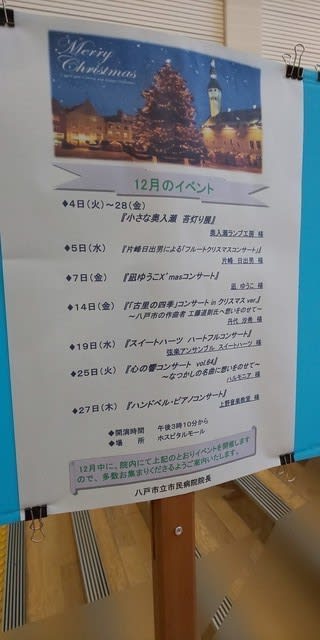 Merry
Christmas
12月のイベント
♦4日(火)～28(金)
『小さな奥入瀬 苔灯り展』
奥入瀬ランプ工房 様
♦5日(水) 『片峰日出男による「フルートクリスマスコンサート」』
片峰 日出男 様
♦7日(金) 『凪ゆうこX'masコンサート』
凪 ゆうこ 様
♦14日(金) 『「古里の四季」コンサート in クリスマス ver.』
～八戸市の作曲者 工藤道則氏へ想いをのせて～
丹代 沙希 様
♦19日(水) 『スイートハーツ ハートフルコンサート』
弦楽アンサンブル スイートハーツ 様
♦25日(火) 『心の響コンサート vol.64』
～なつかしの名曲に想いをのせて～
ハルモニア 様
♦27日(木) 『ハンドベル・ピアノコンサート』
上野音楽教室 様
◆開演時間 午後3時10分から
◆場 所 ホスピタルモール
12月中に、院内にて上記のとおりイベントを開催します
ので、多数お集まりくださるようご案内いたします。
八戸市立市民病院院長